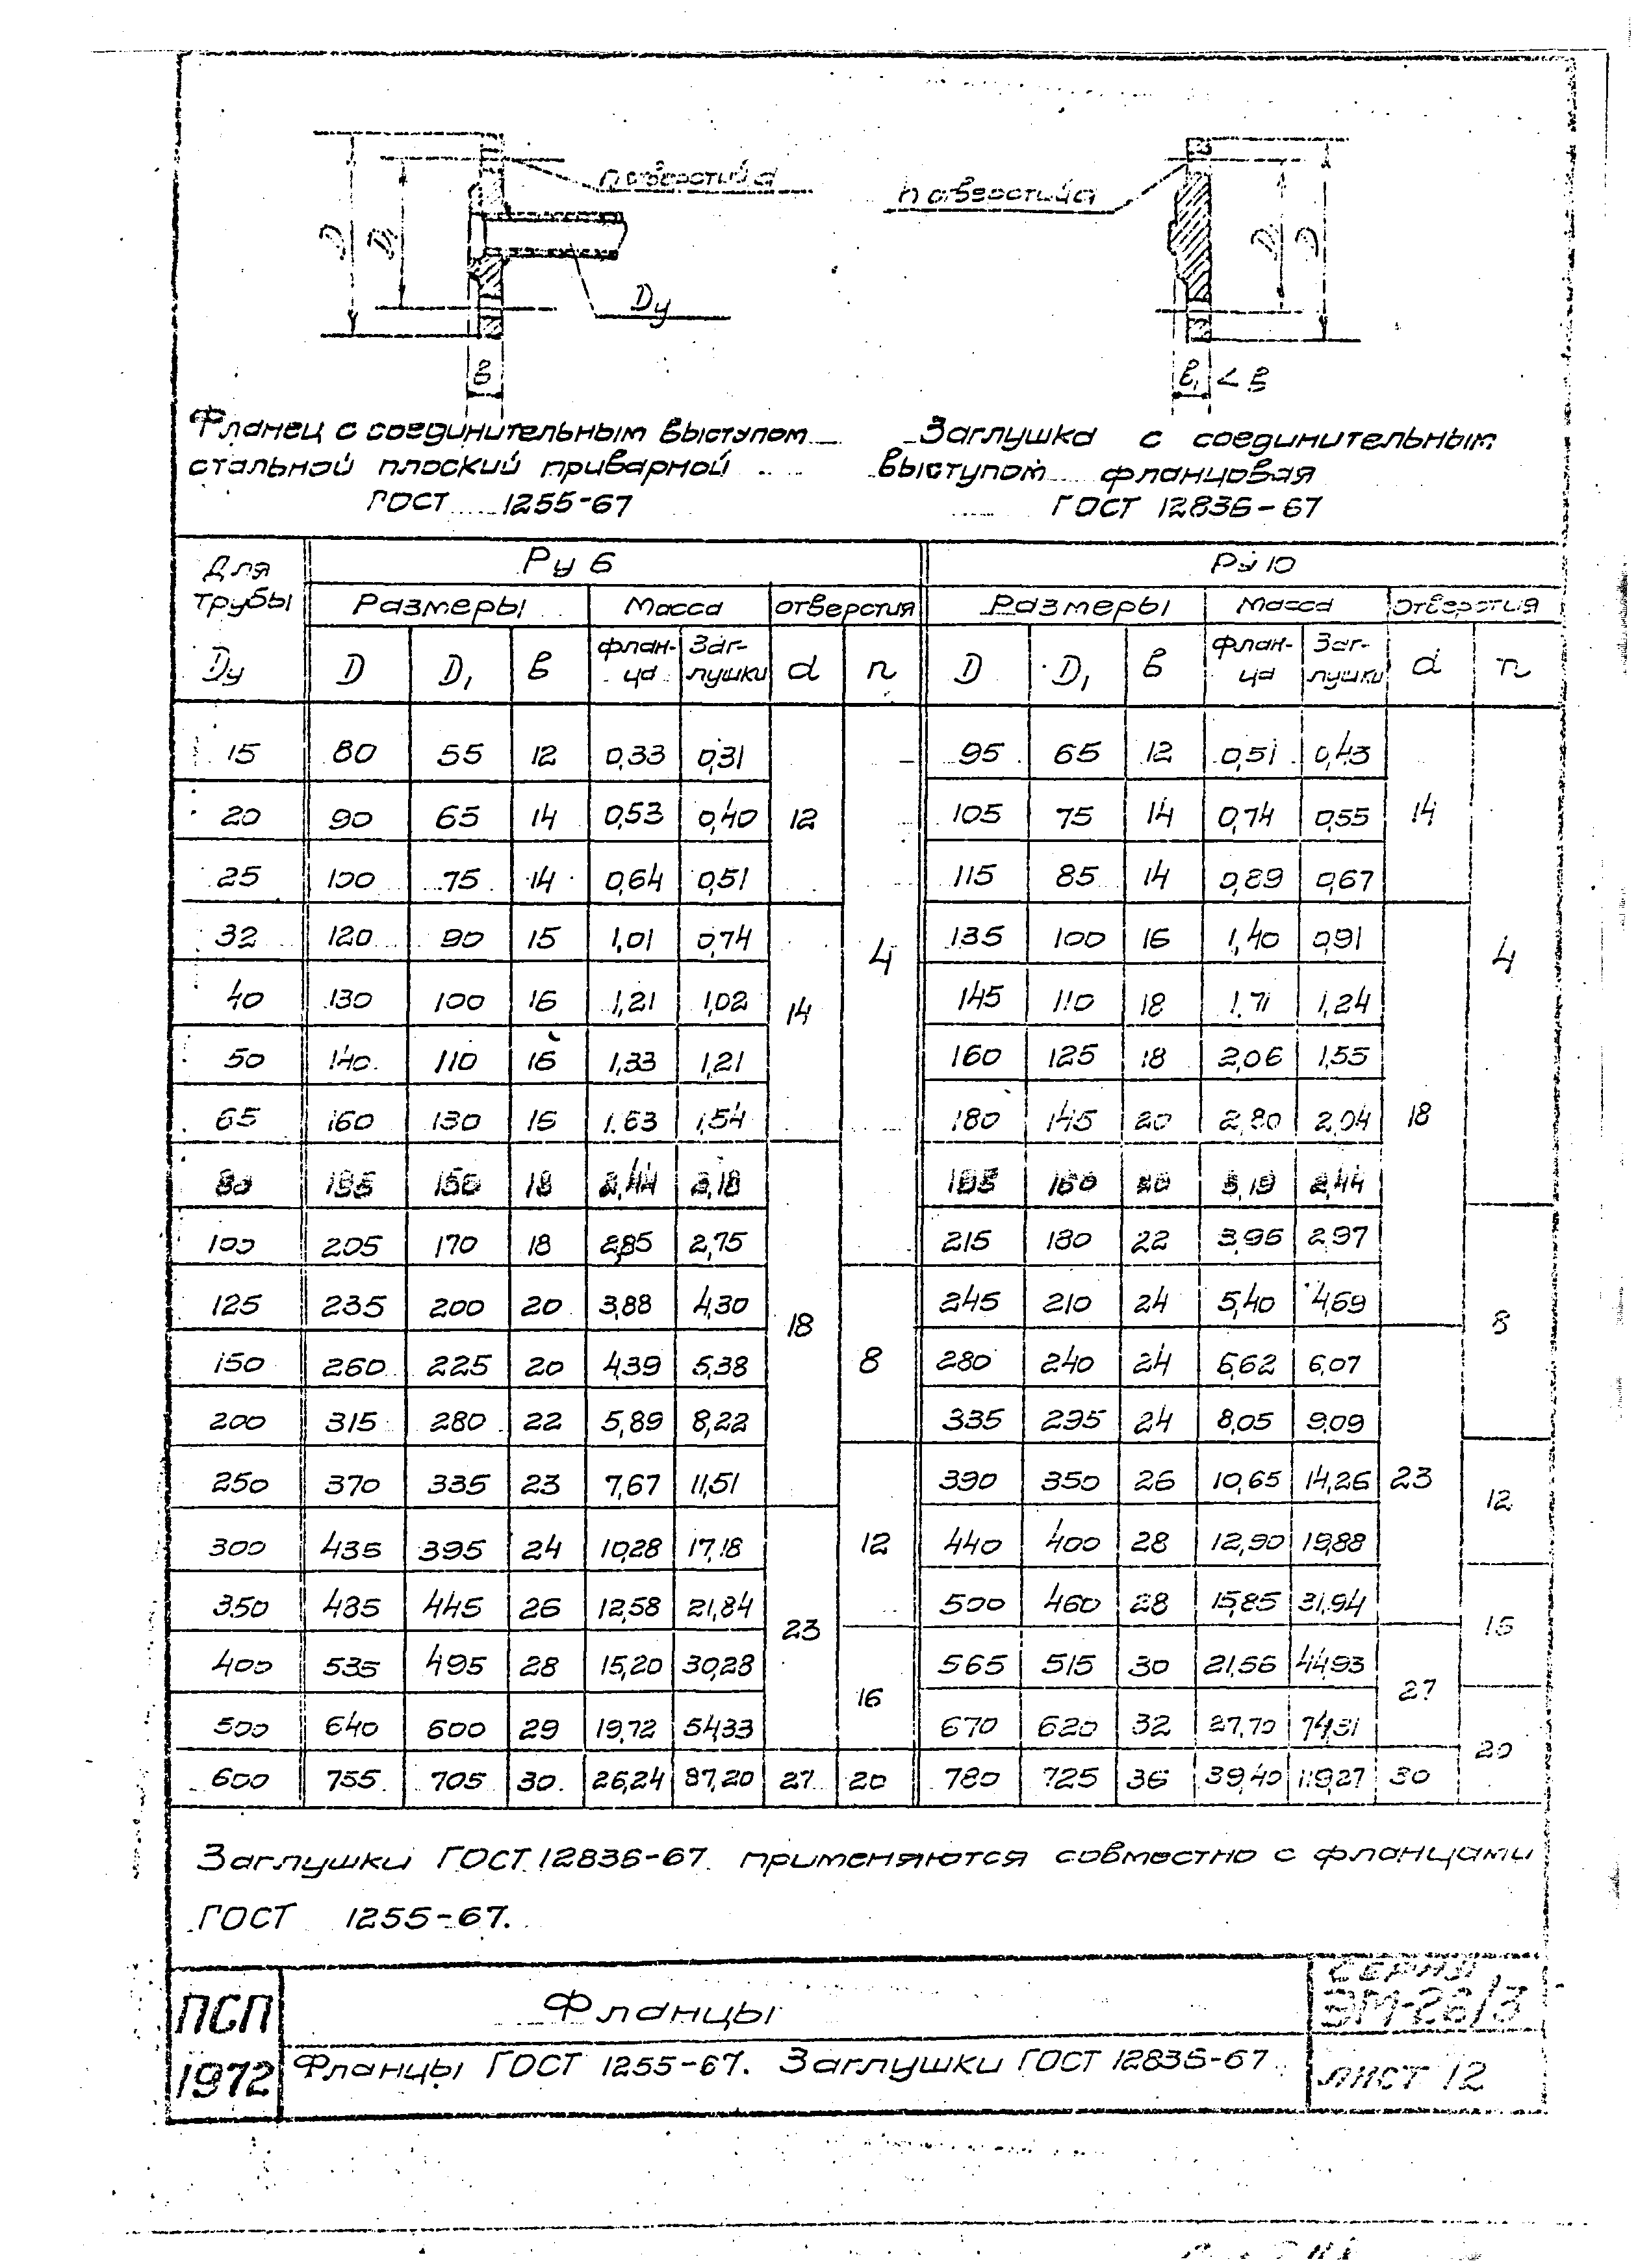 n отверстий d
n отверстий d
D D₁
D₁ D
Dу
в
в₁ < в
Фланец с соединительным выступом
стальной плоский приварной
ГОСТ 1255-67
Заглушка с соединительным
выступом фланцовая
ГОСТ 12836-67
Для трубы Dу | Ру 6 | Ру 10
Размеры | Масса | отверстия | Размеры | Масса | отверстия
D | D₁ | в | флан-ца | Заг-лушки | d | n | D | D₁ | в | флан-ца | Заг-лушки | d | n
15 | 80 | 55 | 12 | 0,33 | 0,31 | 12 | 4 | 95 | 65 | 12 | 0,51 | 0,43 | 14 | 4
20 | 90 | 65 | 14 | 0,53 | 0,40 | 105 | 75 | 14 | 0,74 | 0,55
25 | 100 | 75 | 14 | 0,64 | 0,51 | 115 | 85 | 14 | 0,89 | 0,67
32 | 120 | 90 | 15 | 1,01 | 0,74 | 14 | 135 | 100 | 16 | 1,40 | 0,91 | 18
40 | 130 | 100 | 16 | 1,21 | 1,02 | 145 | 110 | 18 | 1,71 | 1,24
50 | 140 | 110 | 16 | 1,33 | 1,21 | 160 | 125 | 18 | 2,06 | 1,55
65 | 160 | 130 | 16 | 1,63 | 1,54 | 180 | 145 | 20 | 2,80 | 2,04
80 | 185 | 150 | 18 | 2,44 | 2,18 | 18 | 195 | 160 | 20 | 3,19 | 2,44
100 | 205 | 170 | 18 | 2,85 | 2,75 | 215 | 180 | 22 | 3,96 | 2,97 | 8
125 | 235 | 200 | 20 | 3,88 | 4,30 | 8 | 245 | 210 | 24 | 5,40 | 4,69
150 | 260 | 225 | 20 | 4,39 | 5,38 | 280 | 240 | 24 | 6,62 | 6,07 | 23
200 | 315 | 280 | 22 | 5,89 | 8,22 | 335 | 295 | 24 | 8,05 | 9,09
250 | 370 | 335 | 23 | 7,67 | 11,51 | 12 | 390 | 350 | 26 | 10,65 | 14,26 | 12
300 | 435 | 395 | 24 | 10,28 | 17,18 | 23 | 440 | 400 | 28 | 12,90 | 19,88
350 | 485 | 445 | 26 | 12,58 | 21,84 | 500 | 460 | 28 | 15,85 | 31,94 | 16
400 | 535 | 495 | 28 | 15,20 | 30,28 | 16 | 565 | 515 | 30 | 21,56 | 44,93 | 27
500 | 640 | 600 | 29 | 19,72 | 54,33 | 670 | 620 | 32 | 27,70 | 74,31 | 20
600 | 755 | 705 | 30 | 26,24 | 87,20 | 27 | 20 | 780 | 725 | 36 | 39,40 | 119,27 | 30
Заглушки ГОСТ 12836-67 применяются совместно с фланцами
ГОСТ 1255-67.
ПСП
1972
Фланцы
Фланцы ГОСТ 1255-67. Заглушки ГОСТ 12836-67
СЕРИЯ
ЭМ-26/3
ЛИСТ 12